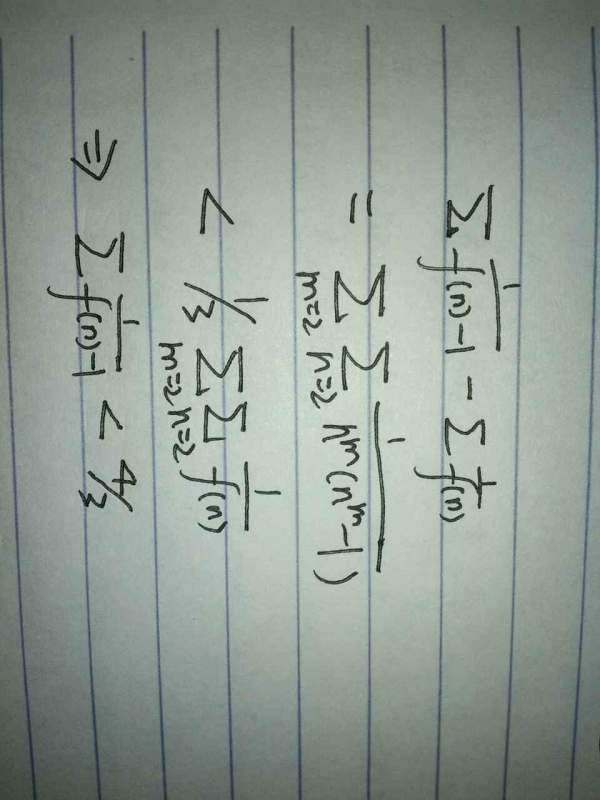 ∑ 1/(f(n)-1) - ∑ 1/f(n)
= ∑_{m=2} ∑_{n=2} 1/(n^m(n^m-1))
< 1/3 ∑_{m=2} ∑_{n=2} 1/f(n)
⇒ ∑ 1/(f(n)-1) < 4/3